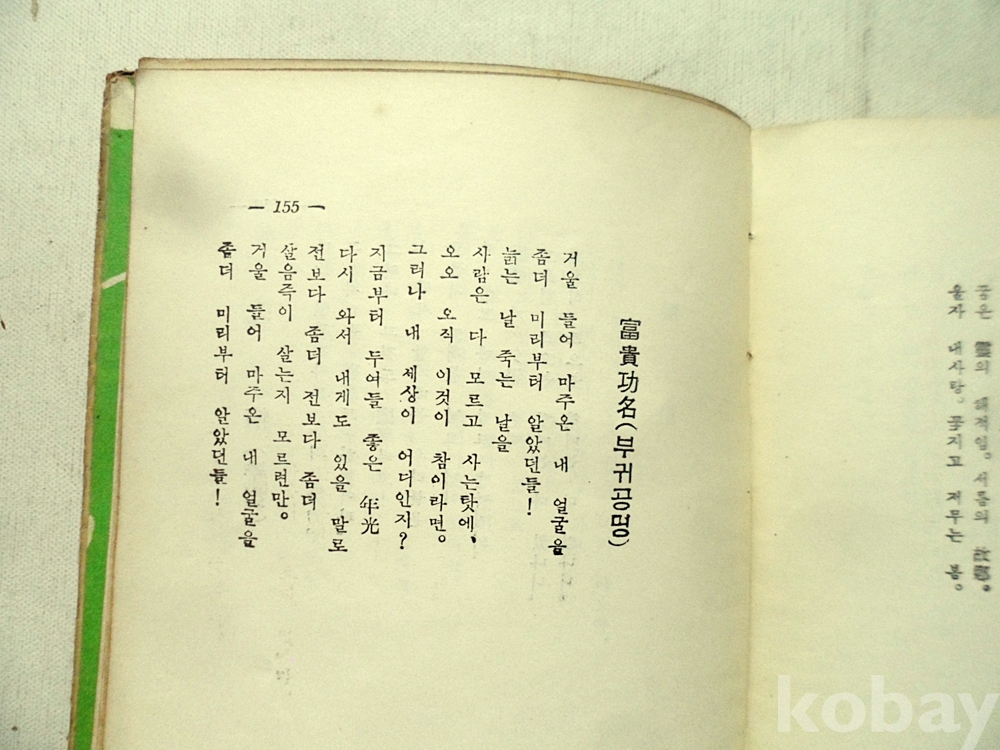 굼은 靈의 해적임. 서름의 故鄕。
울자 내사랑. 꽃지고 저무는 봄。
富貴功名(부귀공명)
거울 들어 마주온 내 얼굴을
좀더 미리부터 알았던들!
늙는 날 죽는 날을
사람은 다 모르고 사는탓에、
오오 오직 이것이 참이라면。
그러나 내 세상이 어디인지?
지금부터 두여들 좋은 年光
다시 와서 내게도 있을 말로
전보다 좀더 전보다 좀더
살음즉이 살는지 모르련만。
거울 들어 마주온 내 얼굴을
좀더 미리부터 알았던들!
— 155 —
kobay